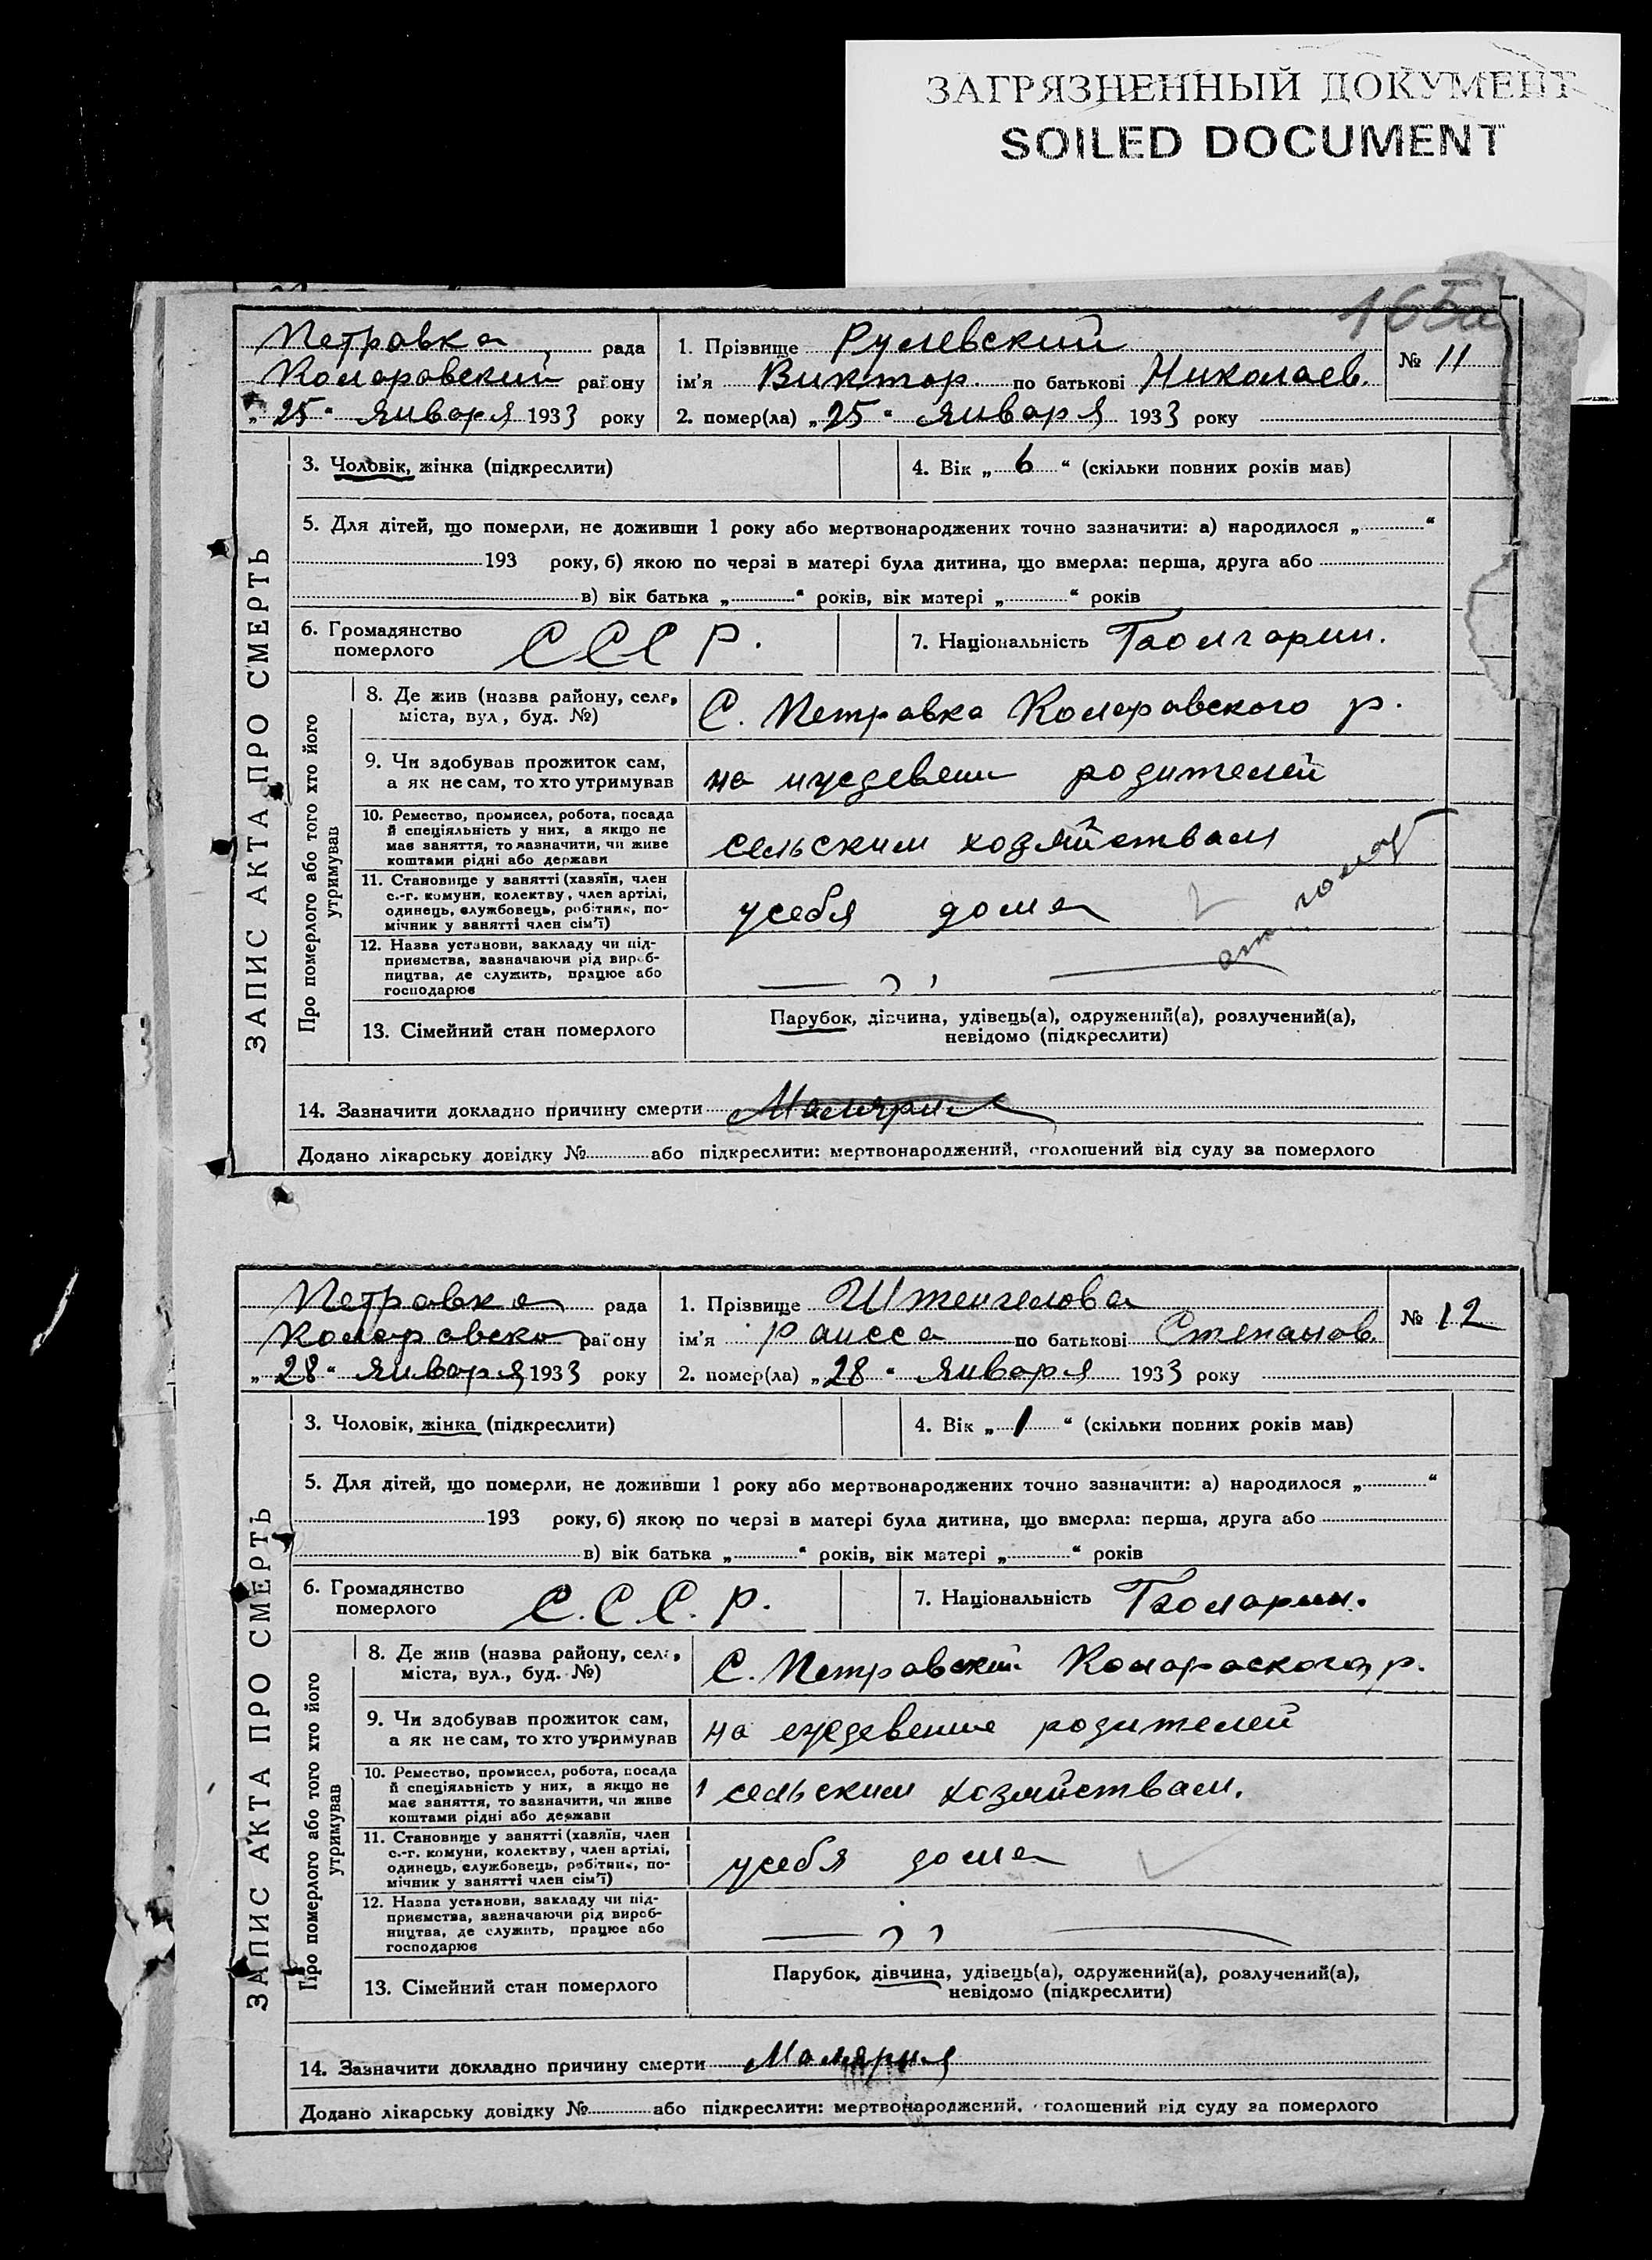 ЗАГРЯЗНЕННЫЙ ДОКУМЕНТ
SOILED DOCUMENT
165а
Петровка рада
Коларовский району
„25“ января 1933 року
1. Прізвище Рулевский
ім'я Виктор по батькові Николаев.
2. помер(ла) „25“ января 1933 року
№ 11
ЗАПИС АКТА ПРО СМЕРТЬ
3. Чоловік, жінка (підкреслити)
4. Вік „6“ (скільки повних років мав)
5. Для дітей, що померли, не доживши 1 року або мертвонароджених точно зазначити: а) народилося „ “
193 року, б) якою по черзі в матері була дитина, що вмерла: перша, друга або
в) вік батька „ “ років, вік матері „ “ років
6. Громадянство померлого СССР.
7. Національність
Про померлого або того хто його утримував
8. Де жив (назва району, села, міста, вул., буд. №) С. Петровка Коларовского р.
9. Чи здобував прожиток сам, а як не сам, то хто утримував на иждевении родителей
10. Ремество, промисел, робота, посада й спеціяльність у них, а якщо не має заняття, то зазначити, чи живе коштами рідні або держави сельским хозяйствам
11. Становище у занятті (хазяїн, член с.-г. комуни, колектву, член артілі, одинець, службовець, робітник, помічник у занятті член сім'ї) усебя дома
12. Назва установи, закладу чи підприємства, зазначаючи рід виробництва, де служить, працює або господарює — „ —
13. Сімейний стан померлого Парубок, дівчина, удівець(а), одружений(а), розлучений(а), невідомо (підкреслити)
14. Зазначити докладно причину смерти Малярия
Додано лікарську довідку № або підкреслити: мертвонароджений, оголошений від суду за померлого
Петровка рада
району
„28“ января 1933 року
1. Прізвище Штенгелова
ім'я Раисса по батькові Степанов.
2. помер(ла) „28“ января 1933 року
№ 12
ЗАПИС АКТА ПРО СМЕРТЬ
3. Чоловік, жінка (підкреслити)
4. Вік „1“ (скільки повних років мав)
5. Для дітей, що померли, не доживши 1 року або мертвонароджених точно зазначити: а) народилося „ “
193 року, б) якою по черзі в матері була дитина, що вмерла: перша, друга або
в) вік батька „ “ років, вік матері „ “ років
6. Громадянство померлого С.С.С.Р.
7. Національність
Про померлого або того хто його утримував
8. Де жив (назва району, села, міста, вул., буд. №) С. Петровский р.
9. Чи здобував прожиток сам, а як не сам, то хто утримував на родителей
10. Ремество, промисел, робота, посада й спеціяльність у них, а якщо не має заняття, то зазначити, чи живе коштами рідні або держави сельским хозяйствам.
11. Становище у занятті (хазяїн, член с.-г. комуни, колектву, член артілі, одинець, службовець, робітник, помічник у занятті член сім'ї) усебя дома
12. Назва установи, закладу чи підприємства, зазначаючи рід виробництва, де служить, працює або господарює — „ —
13. Сімейний стан померлого Парубок, дівчина, удівець(а), одружений(а), розлучений(а), невідомо (підкреслити)
14. Зазначити докладно причину смерти Малярия
Додано лікарську довідку № або підкреслити: мертвонароджений, оголошений від суду за померлого